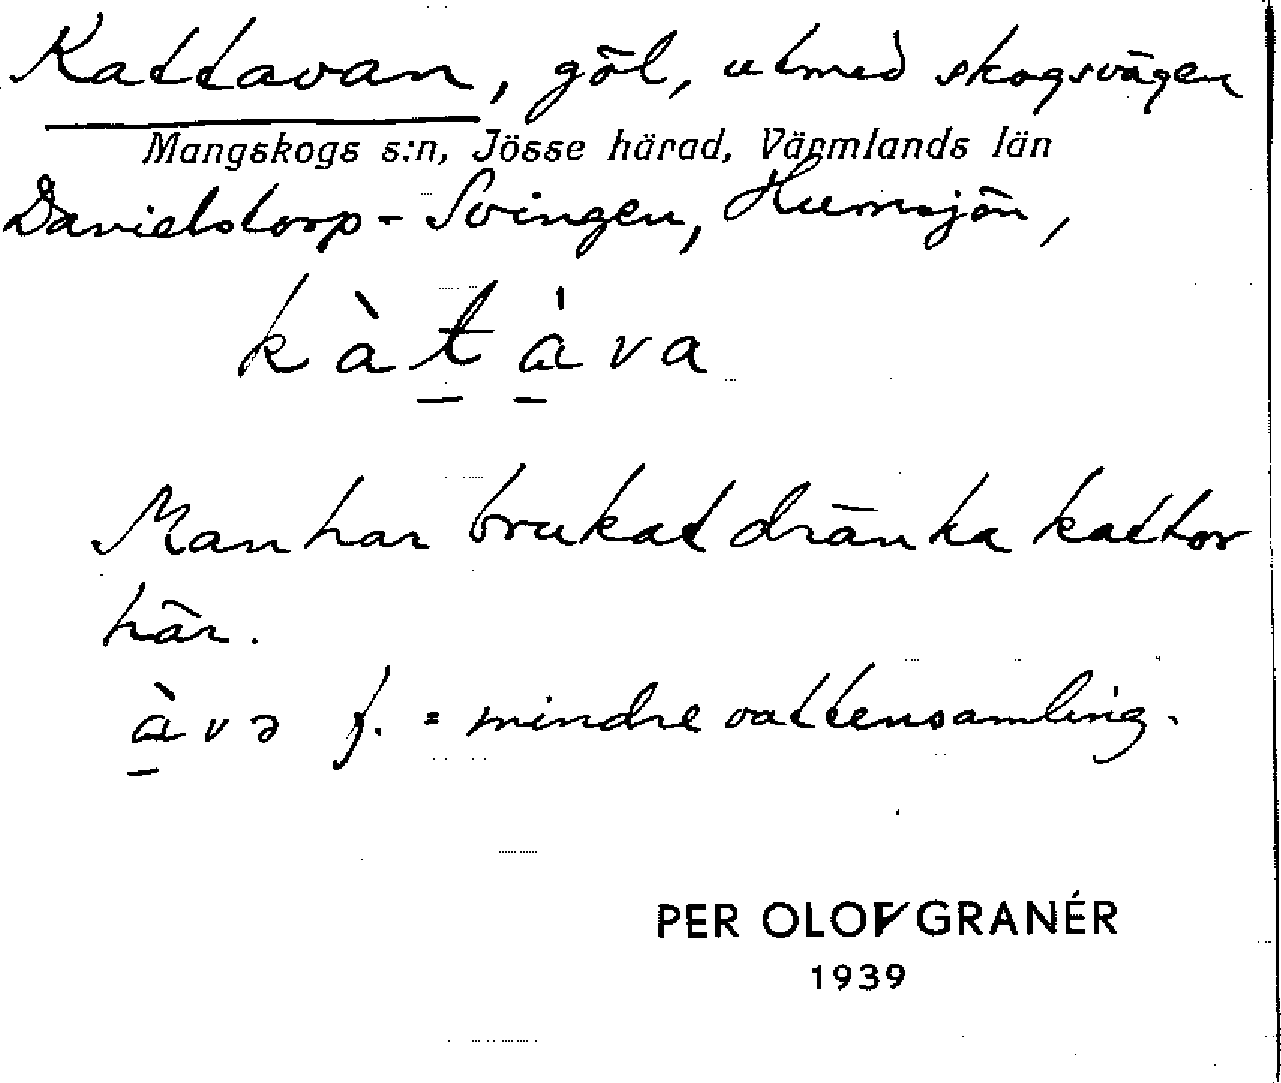 Kattavan, göl, utmed skogsvägen
Mangskogs s:n, Jösse härad, Värmlands län
Davidstorp - Svingen, Humsjön,
kàt̲a̲̍va
Man har brukat dränka kattor
här.
à̲və f. = mindre vattensamling.
PER OLOV GRANÉR
1939